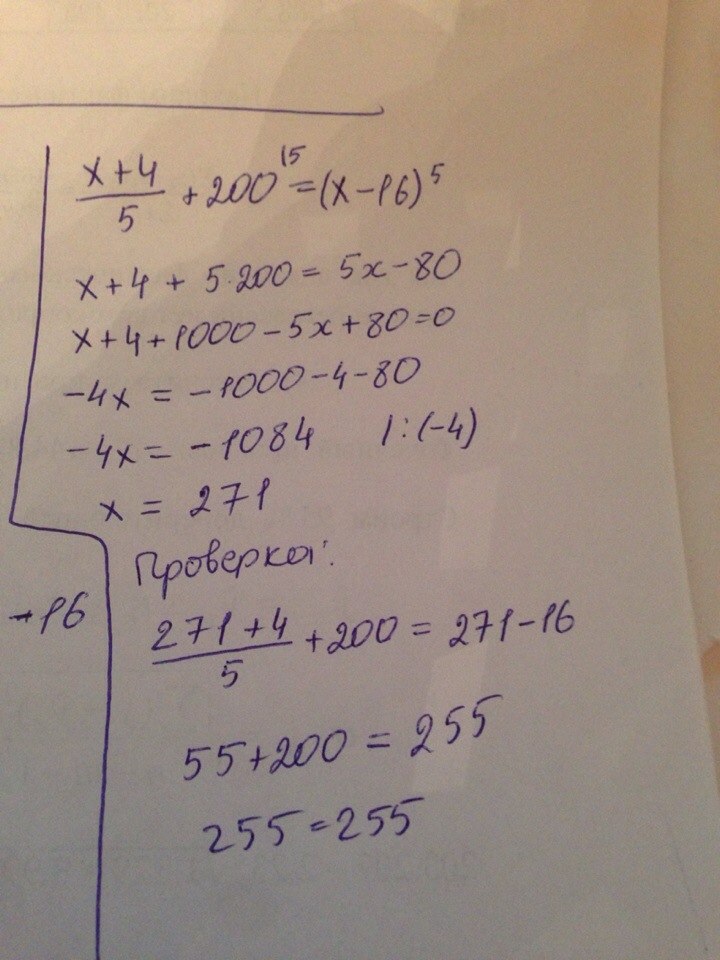 x+4/5 + 200^15 = (x-16)^5
x+4 + 5·200 = 5x-80
x+4+1000-5x+80=0
-4x = -1000-4-80
-4x = -1084 |:(-4)
x = 271
Проверка:
-16
271+4/5 +200 = 271-16
55+200 = 255
255=255